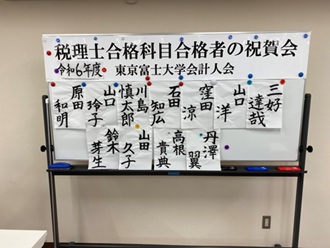 税理士合格科目合格者の祝賀会
令和6年度 東京富士大学会計人会
三好 達哉
山口 洋
窪田 涼
石田 知広
川島 慎太郎
山口 玲子
原田 和明
丹澤 翼
高根 貴典
山田 久子
鈴木 芽生